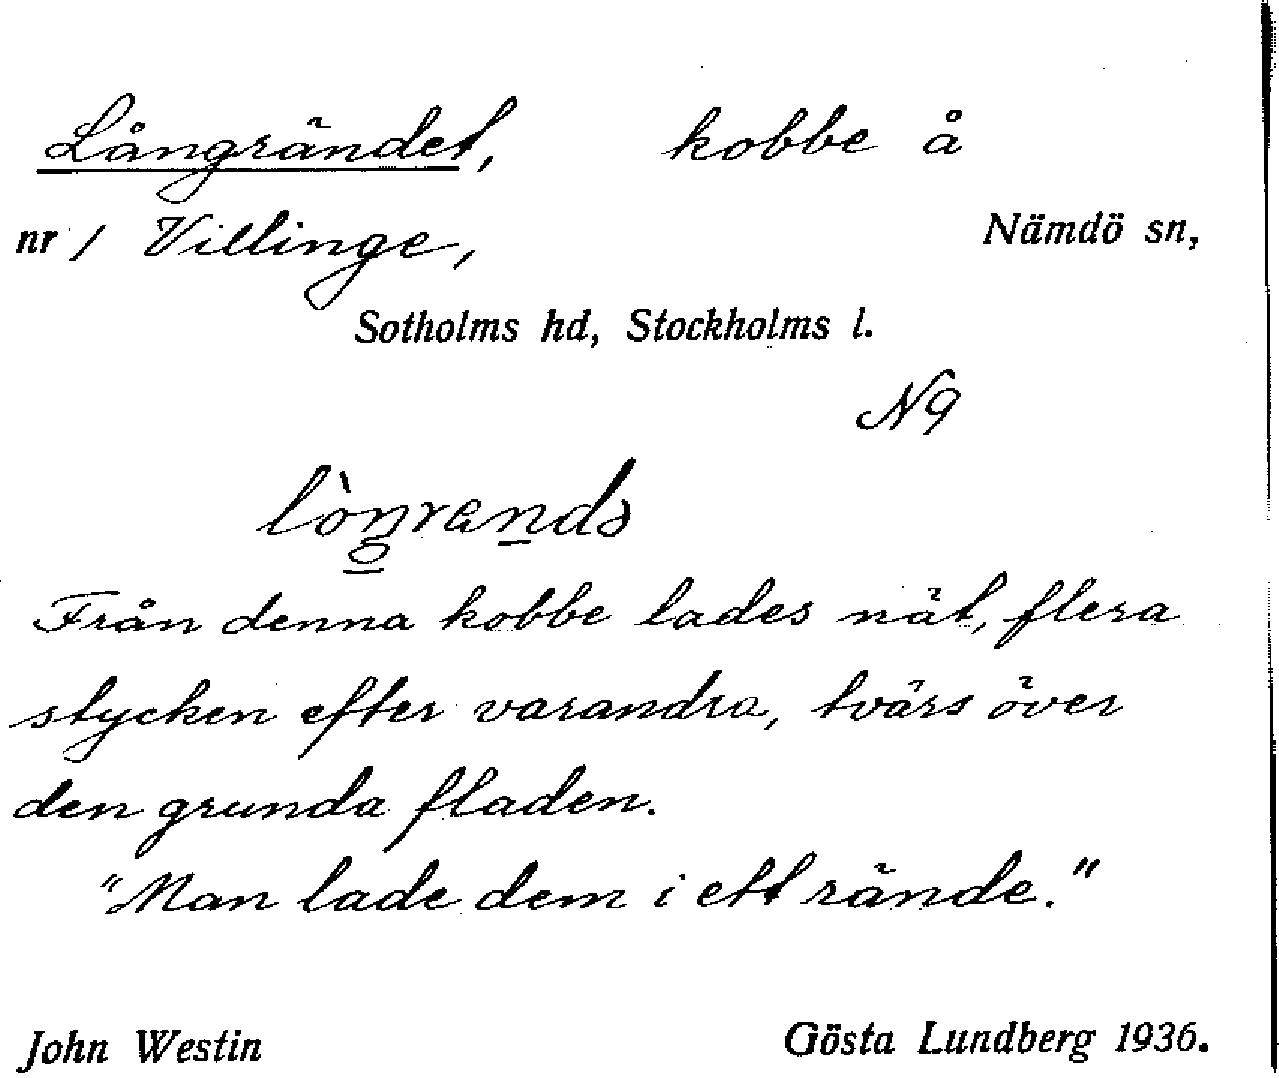 Långrändet, kobbe å
nr 1 Villinge, Nämdö sn,
Sotholms hd, Stockholms l.
N9
Från denna kobbe lades nät, flera
stycken efter varandra, tvärs över
den grunda fladen.
"Man lade dem i ett rände."
John Westin Gösta Lundberg 1936.